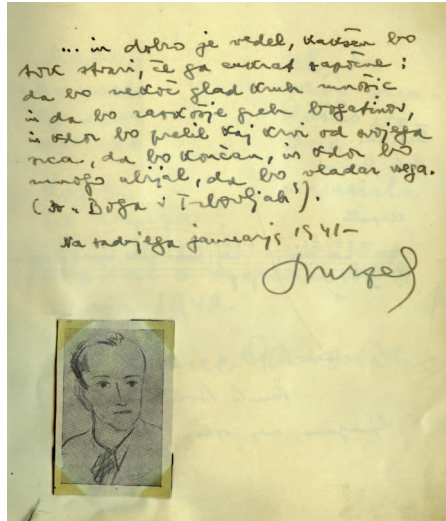 ... in dobro je vedel, kakšen bo
tok stvari, če ga enkrat započne:
da bo nekoč glad kruh množic
in da bo razkošje greh bogatinov,
in kdor bo prelil kaj krvi od svojega
srca, da bo končan, in kdor bo
mnogo ubijal, da bo vladar vsega.
Boga v Trbovljah").
Na zadnjega januarja 1941-